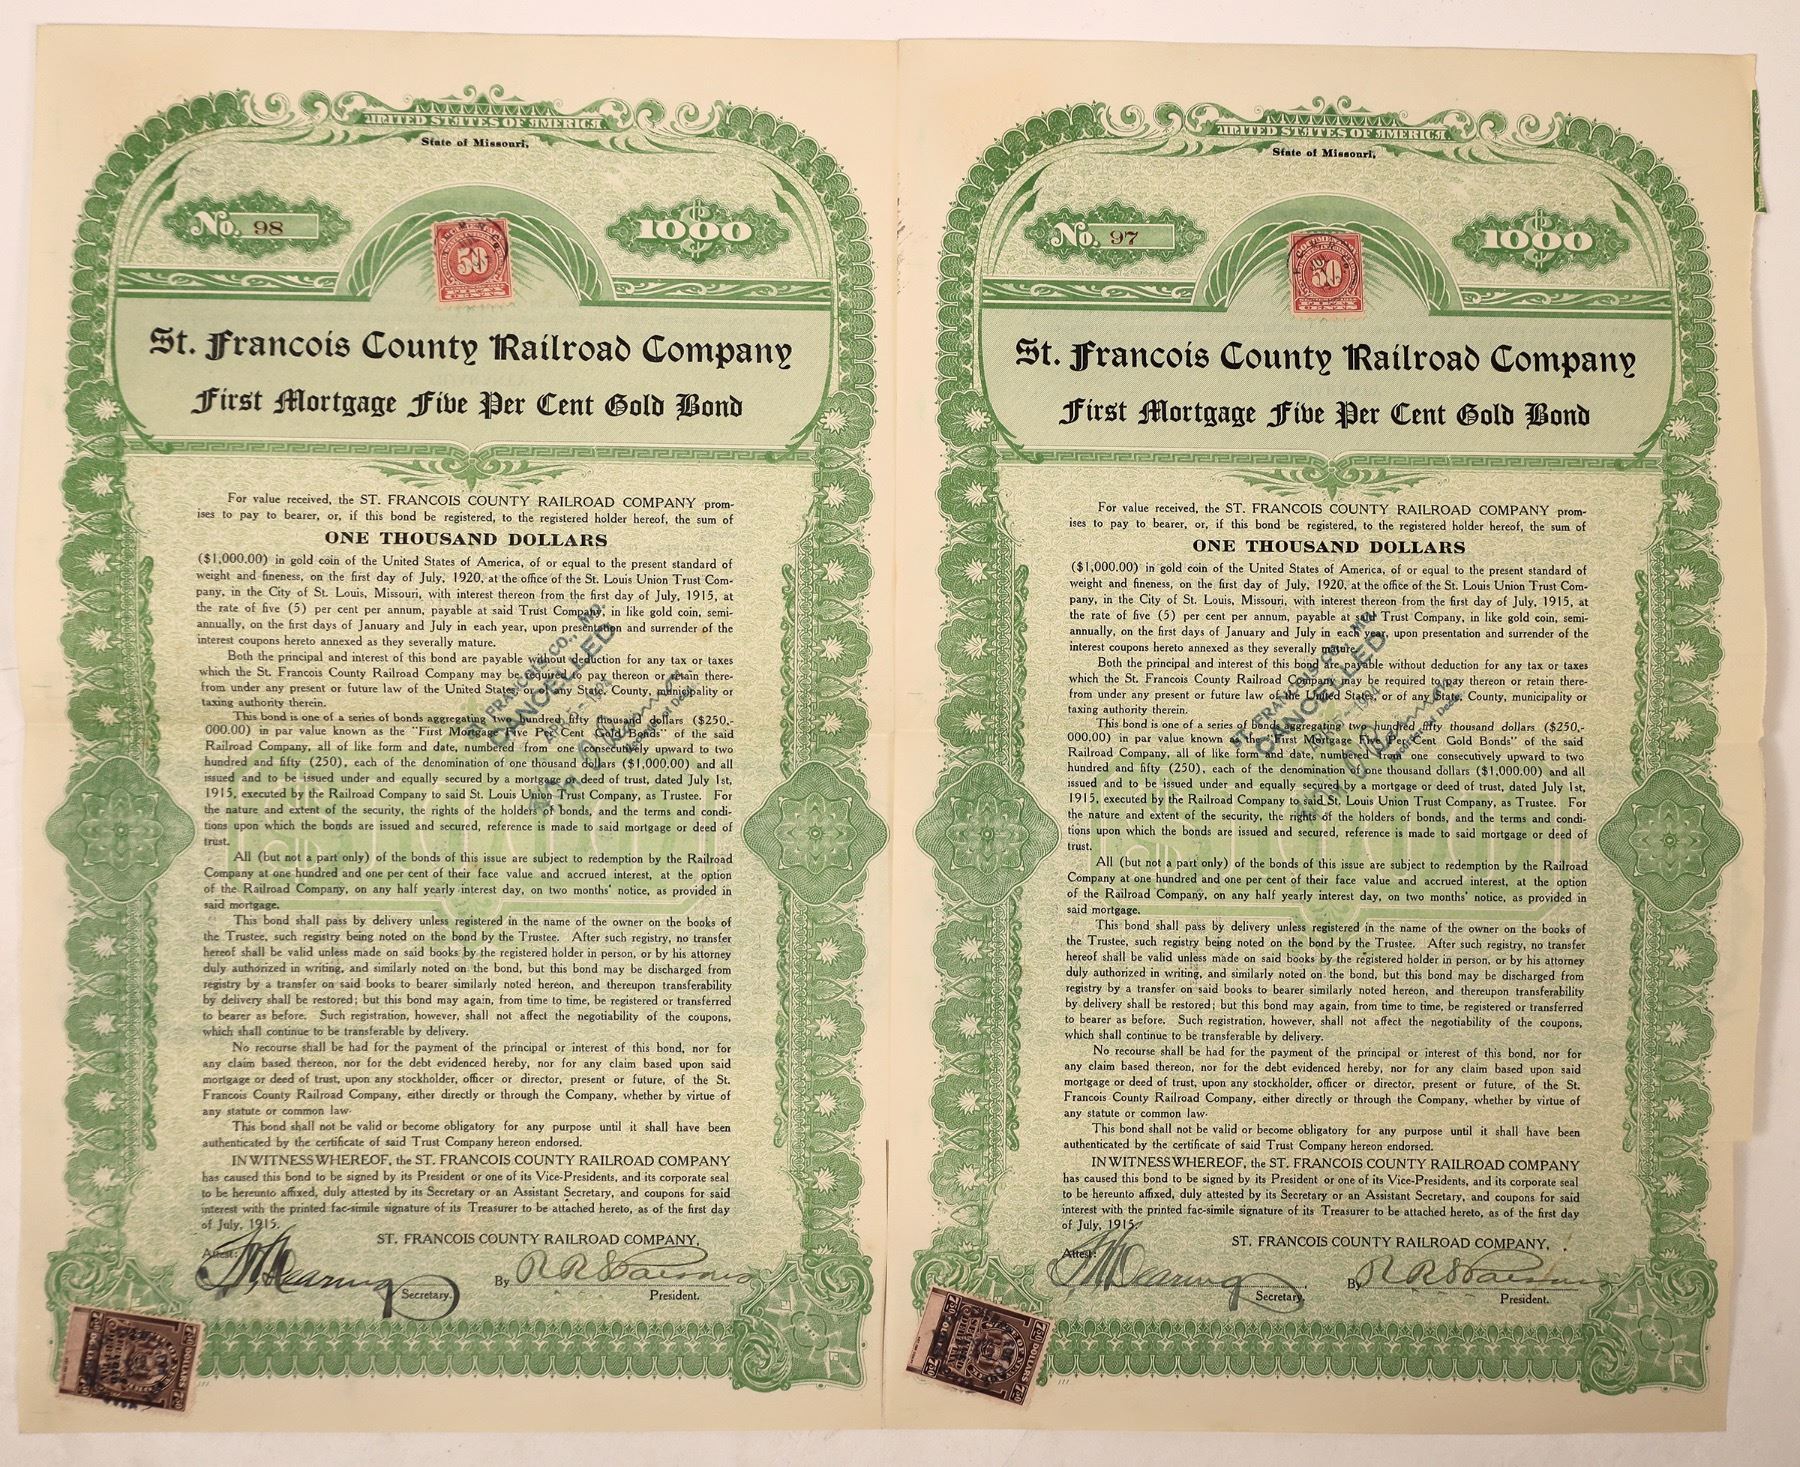 UNITED STATES OF AMERICA
State of Missouri,
No. 98
$1000
50
FIFTY CENTS
St. Francois County Railroad Company
First Mortgage Five Per Cent Gold Bond
For value received, the ST. FRANCOIS COUNTY RAILROAD COMPANY prom-
ises to pay to bearer, or, if this bond be registered, to the registered holder hereof, the sum of
ONE THOUSAND DOLLARS
($1,000.00) in gold coin of the United States of America, of or equal to the present standard of
weight and fineness, on the first day of July, 1920, at the office of the St. Louis Union Trust Com-
pany, in the City of St. Louis, Missouri, with interest thereon from the first day of July, 1915, at
the rate of five (5) per cent per annum, payable at said Trust Company, in like gold coin, semi-
annually, on the first days of January and July in each year, upon presentation and surrender of the
interest coupons hereto annexed as they severally mature.
Both the principal and interest of this bond are payable without deduction for any tax or taxes
which the St. Francois County Railroad Company may be required to pay thereon or retain there-
from under any present or future law of the United States, or of any State, County, municipality or
taxing authority therein.
This bond is one of a series of bonds aggregating two hundred fifty thousand dollars ($250,-
000.00) in par value known as the "First Mortgage Five Per Cent Gold Bonds" of the said
Railroad Company, all of like form and date, numbered from one consecutively upward to two
hundred and fifty (250), each of the denomination of one thousand dollars ($1,000.00) and all
issued and to be issued under and equally secured by a mortgage or deed of trust, dated July 1st,
1915, executed by the Railroad Company to said St. Louis Union Trust Company, as Trustee. For
the nature and extent of the security, the rights of the holders of bonds, and the terms and condi-
tions upon which the bonds are issued and secured, reference is made to said mortgage or deed of
trust.
All (but not a part only) of the bonds of this issue are subject to redemption by the Railroad
Company at one hundred and one per cent of their face value and accrued interest, at the option
of the Railroad Company, on any half yearly interest day, on two months' notice, as provided in
said mortgage.
This bond shall pass by delivery unless registered in the name of the owner on the books of
the Trustee, such registry being noted on the bond by the Trustee. After such registry, no transfer
hereof shall be valid unless made on said books by the registered holder in person, or by his attorney
duly authorized in writing, and similarly noted on the bond, but this bond may be discharged from
registry by a transfer on said books to bearer similarly noted hereon, and thereupon transferability
by delivery shall be restored; but this bond may again, from time to time, be registered or transferred
to bearer as before. Such registration, however, shall not affect the negotiability of the coupons,
which shall continue to be transferable by delivery.
No recourse shall be had for the payment of the principal or interest of this bond, nor for
any claim based thereon, nor for the debt evidenced hereby, nor for any claim based upon said
mortgage or deed of trust, upon any stockholder, officer or director, present or future, of the St.
Francois County Railroad Company, either directly or through the Company, whether by virtue of
any statute or common law.
This bond shall not be valid or become obligatory for any purpose until it shall have been
authenticated by the certificate of said Trust Company hereon endorsed.
IN WITNESS WHEREOF, the ST. FRANCOIS COUNTY RAILROAD COMPANY
has caused this bond to be signed by its President or one of its Vice-Presidents, and its corporate seal
to be hereunto affixed, duly attested by its Secretary or an Assistant Secretary, and coupons for said
interest with the printed fac-simile signature of its Treasurer to be attached hereto, as of the first day
of July, 1915.
ST. FRANCOIS CO., MO.
CANCELLED
ST. FRANCOIS COUNTY RAILROAD COMPANY,
Attest:
Secretary.
By
President.
7.50 DOLLARS 7.50
UNITED STATES OF AMERICA
State of Missouri,
No. 97
$1000
50
FIFTY CENTS
St. Francois County Railroad Company
First Mortgage Five Per Cent Gold Bond
For value received, the ST. FRANCOIS COUNTY RAILROAD COMPANY prom-
ises to pay to bearer, or, if this bond be registered, to the registered holder hereof, the sum of
ONE THOUSAND DOLLARS
($1,000.00) in gold coin of the United States of America, of or equal to the present standard of
weight and fineness, on the first day of July, 1920, at the office of the St. Louis Union Trust Com-
pany, in the City of St. Louis, Missouri, with interest thereon from the first day of July, 1915, at
the rate of five (5) per cent per annum, payable at said Trust Company, in like gold coin, semi-
annually, on the first days of January and July in each year, upon presentation and surrender of the
interest coupons hereto annexed as they severally mature.
Both the principal and interest of this bond are payable without deduction for any tax or taxes
which the St. Francois County Railroad Company may be required to pay thereon or retain there-
from under any present or future law of the United States, or of any State, County, municipality or
taxing authority therein.
This bond is one of a series of bonds aggregating two hundred fifty thousand dollars ($250,-
000.00) in par value known as the "First Mortgage Five Per Cent Gold Bonds" of the said
Railroad Company, all of like form and date, numbered from one consecutively upward to two
hundred and fifty (250), each of the denomination of one thousand dollars ($1,000.00) and all
issued and to be issued under and equally secured by a mortgage or deed of trust, dated July 1st,
1915, executed by the Railroad Company to said St. Louis Union Trust Company, as Trustee. For
the nature and extent of the security, the rights of the holders of bonds, and the terms and condi-
tions upon which the bonds are issued and secured, reference is made to said mortgage or deed of
trust.
All (but not a part only) of the bonds of this issue are subject to redemption by the Railroad
Company at one hundred and one per cent of their face value and accrued interest, at the option
of the Railroad Company, on any half yearly interest day, on two months' notice, as provided in
said mortgage.
This bond shall pass by delivery unless registered in the name of the owner on the books of
the Trustee, such registry being noted on the bond by the Trustee. After such registry, no transfer
hereof shall be valid unless made on said books by the registered holder in person, or by his attorney
duly authorized in writing, and similarly noted on the bond, but this bond may be discharged from
registry by a transfer on said books to bearer similarly noted hereon, and thereupon transferability
by delivery shall be restored; but this bond may again, from time to time, be registered or transferred
to bearer as before. Such registration, however, shall not affect the negotiability of the coupons,
which shall continue to be transferable by delivery.
No recourse shall be had for the payment of the principal or interest of this bond, nor for
any claim based thereon, nor for the debt evidenced hereby, nor for any claim based upon said
mortgage or deed of trust, upon any stockholder, officer or director, present or future, of the St.
Francois County Railroad Company, either directly or through the Company, whether by virtue of
any statute or common law.
This bond shall not be valid or become obligatory for any purpose until it shall have been
authenticated by the certificate of said Trust Company hereon endorsed.
IN WITNESS WHEREOF, the ST. FRANCOIS COUNTY RAILROAD COMPANY
has caused this bond to be signed by its President or one of its Vice-Presidents, and its corporate seal
to be hereunto affixed, duly attested by its Secretary or an Assistant Secretary, and coupons for said
interest with the printed fac-simile signature of its Treasurer to be attached hereto, as of the first day
of July, 1915.
ST. FRANCOIS CO., MO.
CANCELLED
ST. FRANCOIS COUNTY RAILROAD COMPANY,
Attest:
Secretary.
By
President.
7.50 DOLLARS 7.50